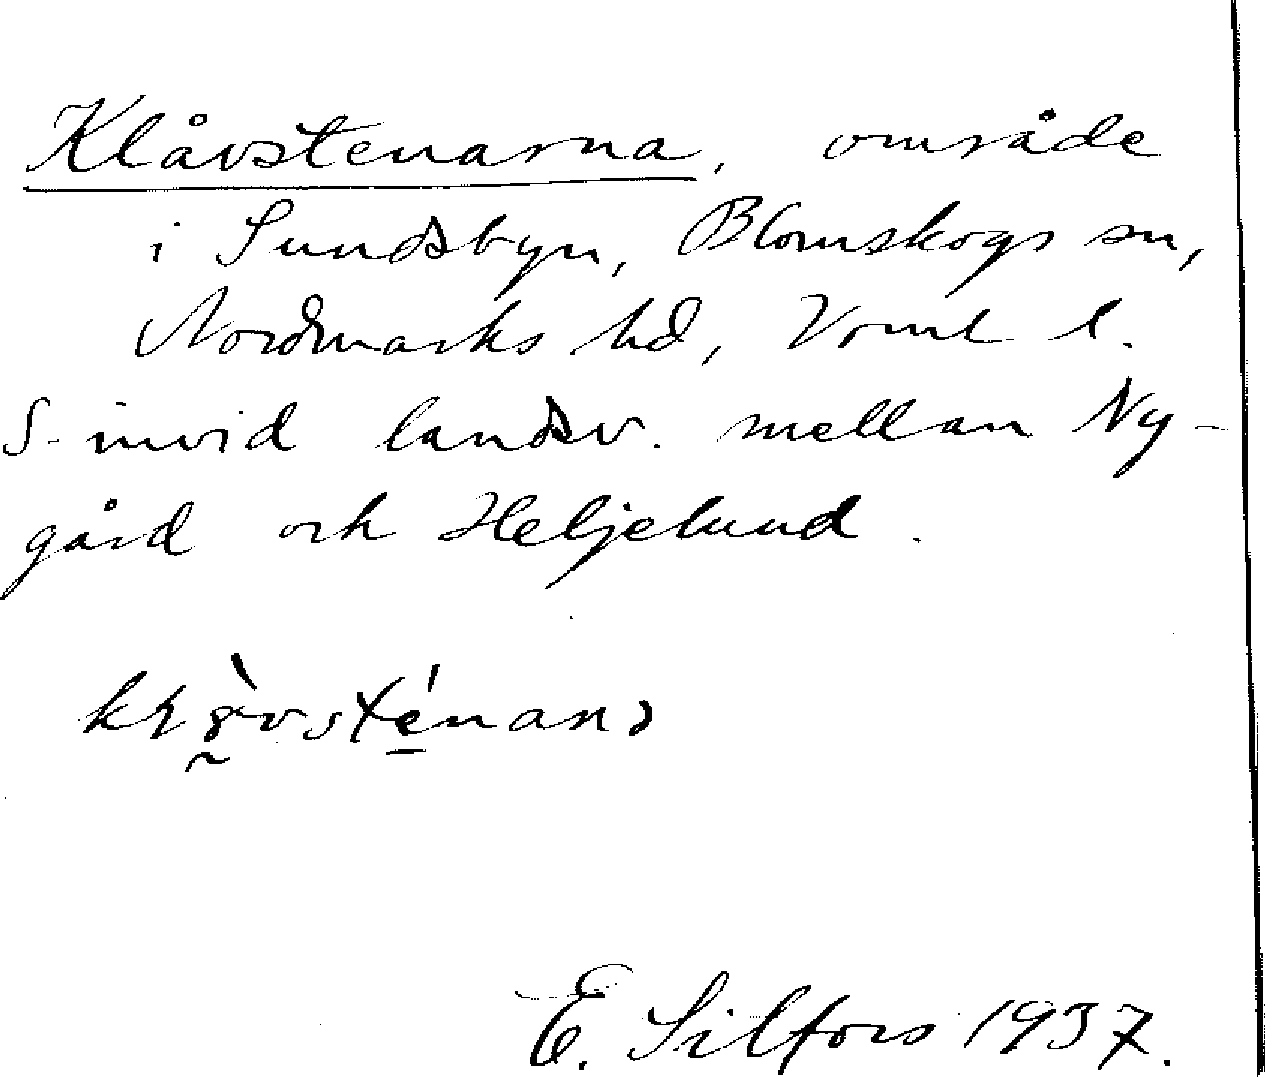 Klåvstenarna, område
i Sundsbyn, Blomskogs sn,
Nordmarks hd, Vrml l.
S. invid landsv. mellan Ny-
gård och Heljelund.
E. Silfors 1937.